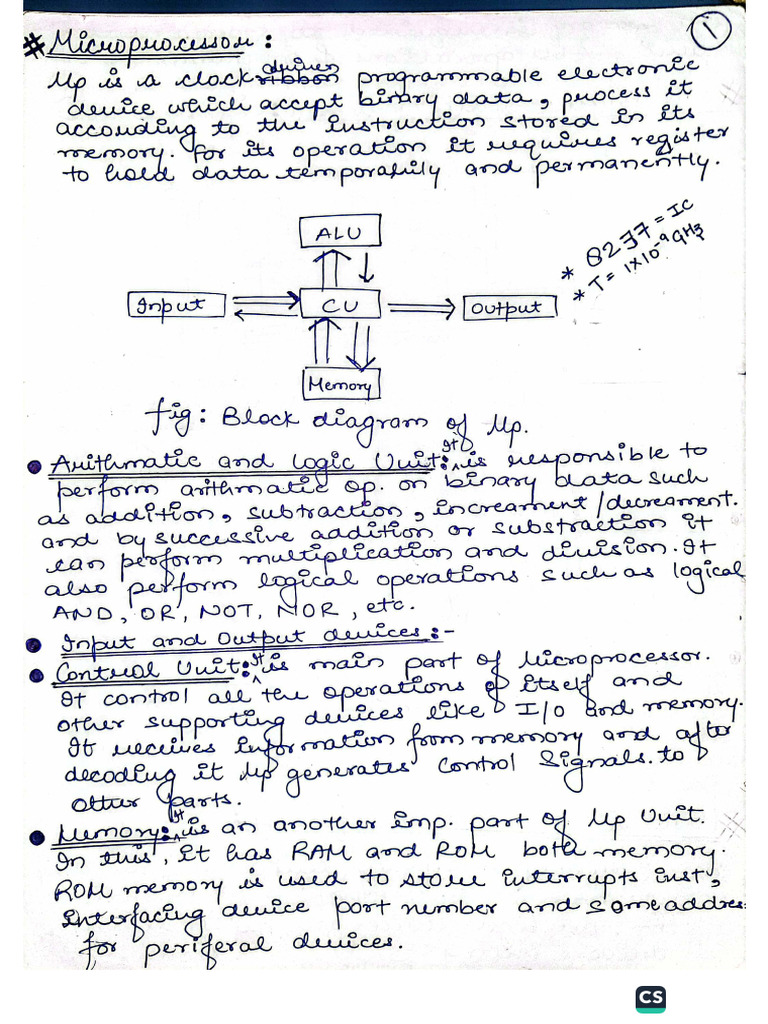 1
# Microprocessor :
driven
Mp is a clock ribbon programmable electronic
device which accept binary data, process it
according to the instruction stored in its
memory. for its operation it requires register
to hold data temporarily and permanently.
ALU
* 8237 = IC
* T = 1x10⁻⁹ GHz
Input
CU
Output
Memory
fig: Block diagram of Mp.
• Arithmatic and logic Unit: It is responsible to
perform arithmatic op. on binary data such
as addition, subtraction, increament/decreament.
and by successive addition or substraction it
can perform multiplication and division. It
also perform logical operations such as logical
AND, OR, NOT, NOR, etc.
• Input and Output devices:-
• Control Unit: It is main part of Microprocessor.
It control all the operations of itself and
other supporting devices like I/O and memory.
It receives information from memory and after
decoding it Mp generates control signals. to
other parts.
• Memory: It is an another imp. part of Mp Unit.
In this, it has RAM and ROM both memory.
ROM memory is used to store interrupts inst,
interfacing device port number and some addres
for periferal devices.
CS